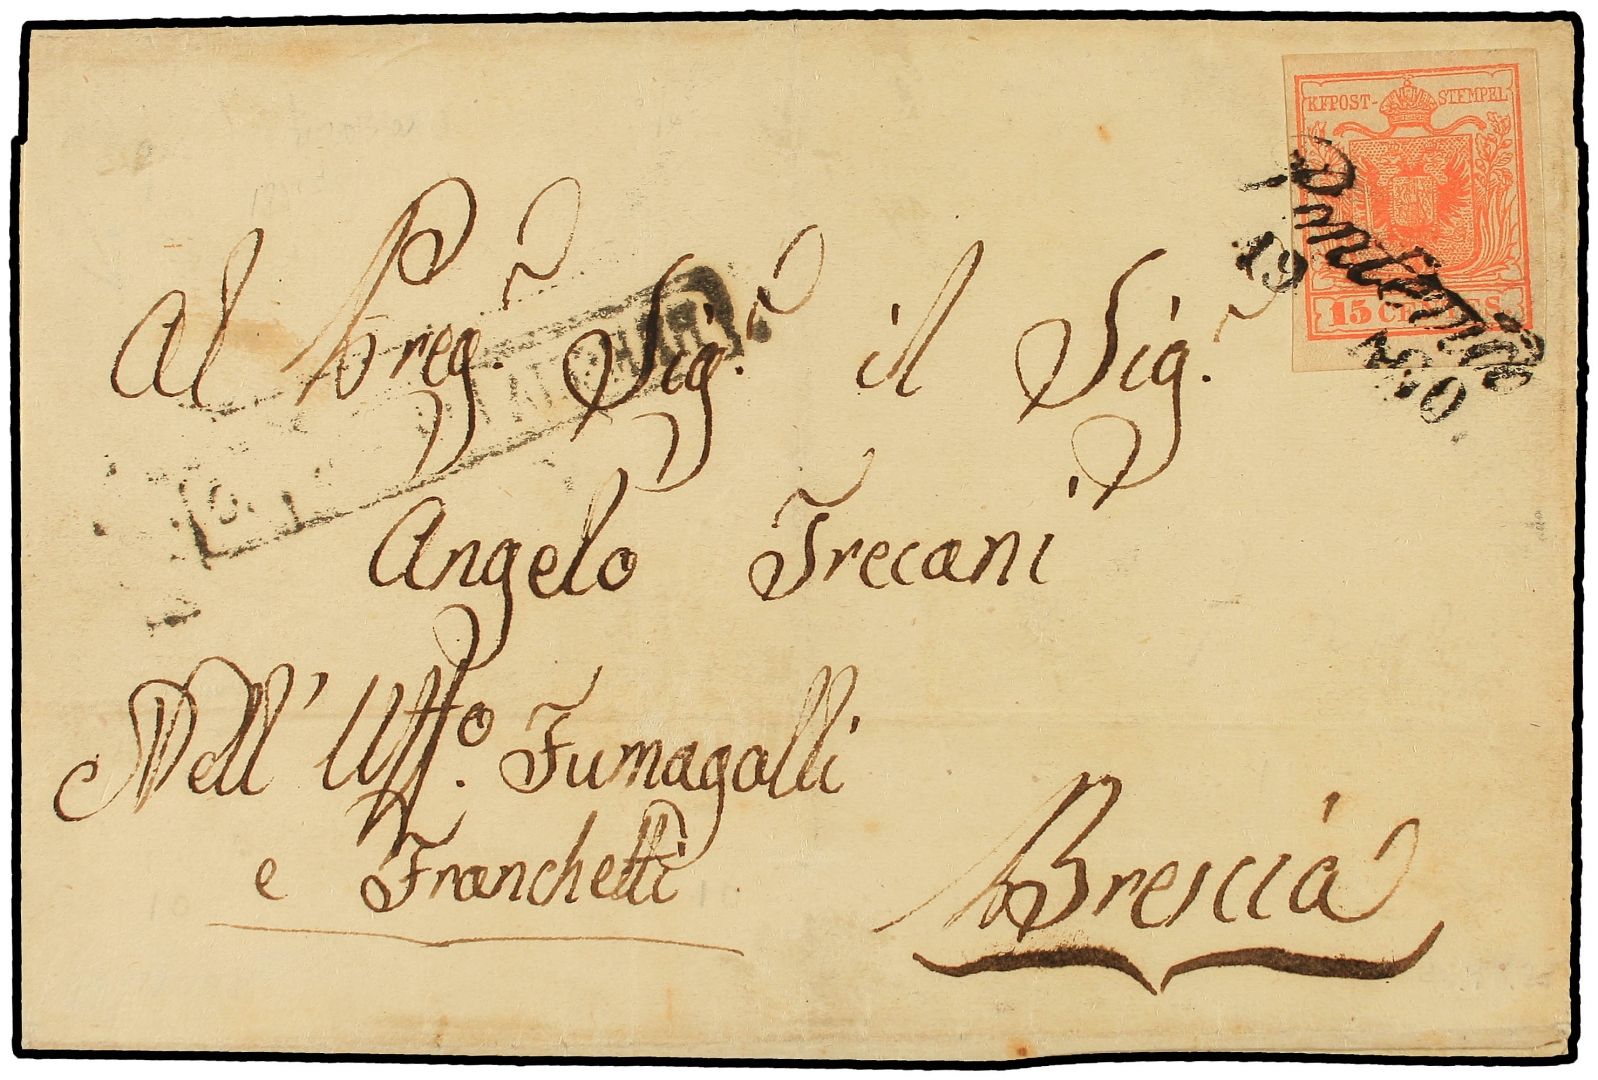 KKPOST-STEMPEL
15 CENTES
19
Al Preg.r Sig.r il Sig.r
Angelo Trecani
Nell' Uff.o Fumagalli
e Franchetti
Brescia